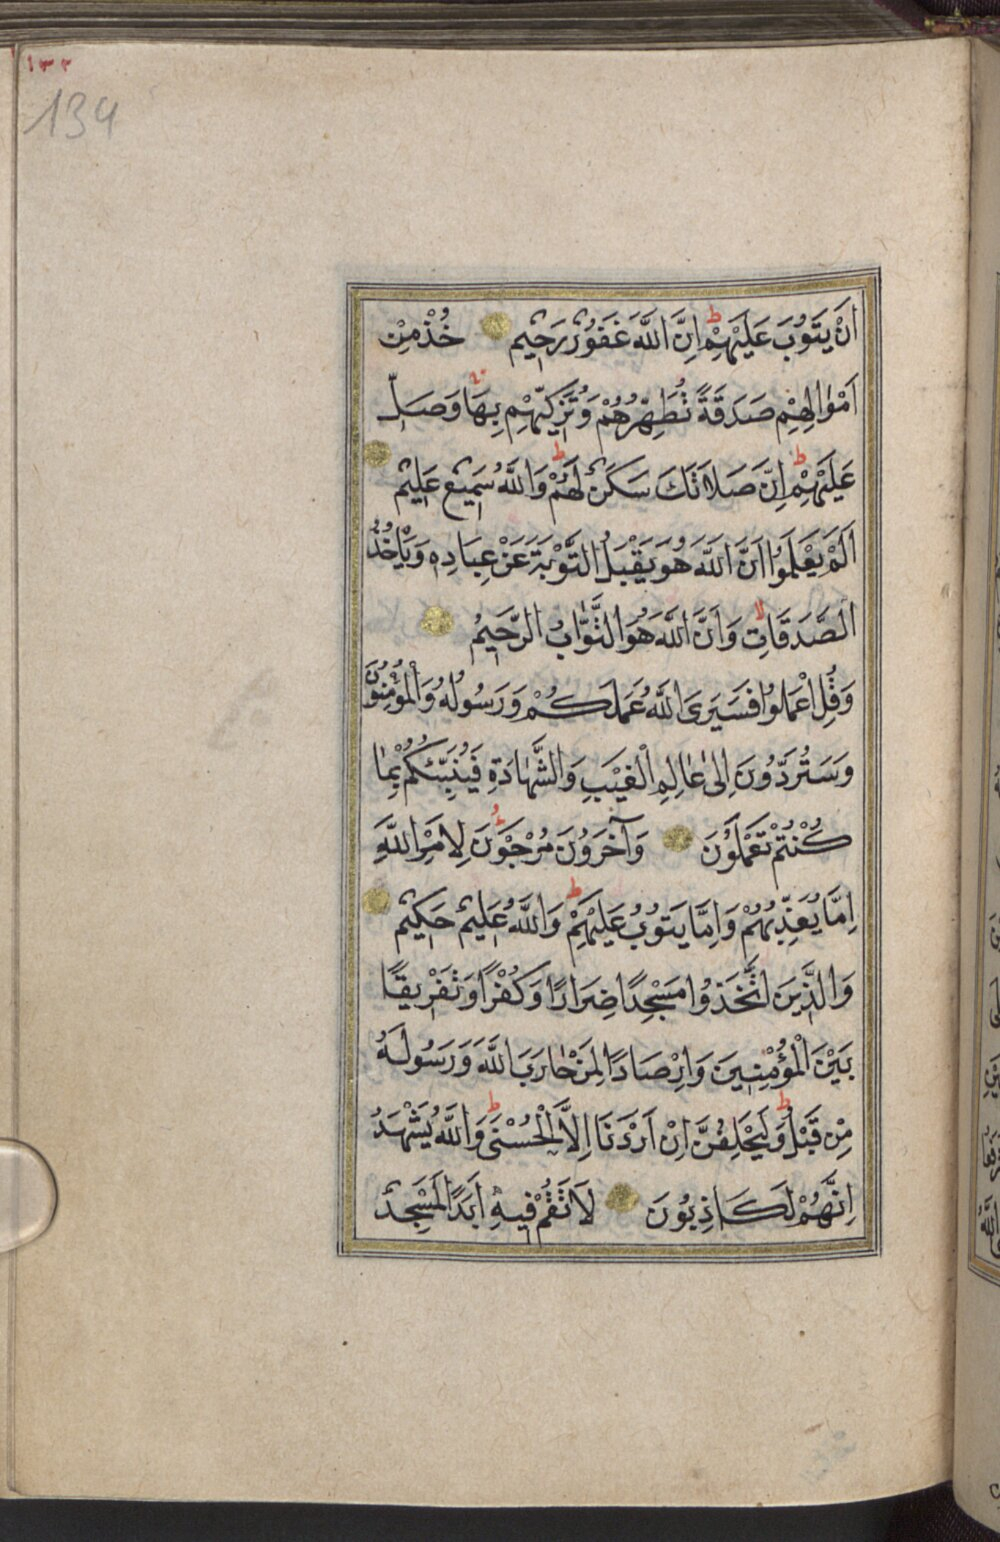 ١٣٢
134
اَنْ يَتُوبَ عَلَيْهِمْ ط اِنَّ اللّٰهَ غَفُورٌ رَحِيمٌ خُذْ مِنْ
اَمْوَالِهِمْ صَدَقَةً تُطَهِّرُهُمْ وَتُزَكِّيهِمْ بِهَا وَصَلِّ
عَلَيْهِمْ ط اِنَّ صَلَاتَكَ سَكَنٌ لَهُمْ ط وَاللّٰهُ سَمِيعٌ عَلِيمٌ
اَلَمْ يَعْلَمُوا اَنَّ اللّٰهَ هُوَ يَقْبَلُ التَّوْبَةَ عَنْ عِبَادِهِ وَيَأْخُذُ
الصَّدَقَاتِ لا وَاَنَّ اللّٰهَ هُوَ التَّوَّابُ الرَّحِيمُ
وَقُلِ اعْمَلُوا فَسَيَرَى اللّٰهُ عَمَلَكُمْ وَرَسُولُهُ وَالْمُؤْمِنُونَ
وَسَتُرَدُّونَ اِلٰى عَالِمِ الْغَيْبِ وَالشَّهَادَةِ فَيُنَبِّئُكُمْ بِمَا
كُنْتُمْ تَعْمَلُونَ وَآخَرُونَ مُرْجَوْنَ لِاَمْرِ اللّٰهِ
اِمَّا يُعَذِّبُهُمْ وَاِمَّا يَتُوبُ عَلَيْهِمْ ط وَاللّٰهُ عَلِيمٌ حَكِيمٌ
وَالَّذِينَ اتَّخَذُوا مَسْجِدًا ضِرَارًا وَكُفْرًا وَتَفْرِيقًا
بَيْنَ الْمُؤْمِنِينَ وَاِرْصَادًا لِمَنْ حَارَبَ اللّٰهَ وَرَسُولَهُ
مِنْ قَبْلُ ط وَلَيَحْلِفُنَّ اِنْ اَرَدْنَا اِلَّا الْحُسْنَى ط وَاللّٰهُ يَشْهَدُ
اِنَّهُمْ لَكَاذِبُونَ لَا تَقُمْ فِيهِ اَبَدًا لَمَسْجِدٌ